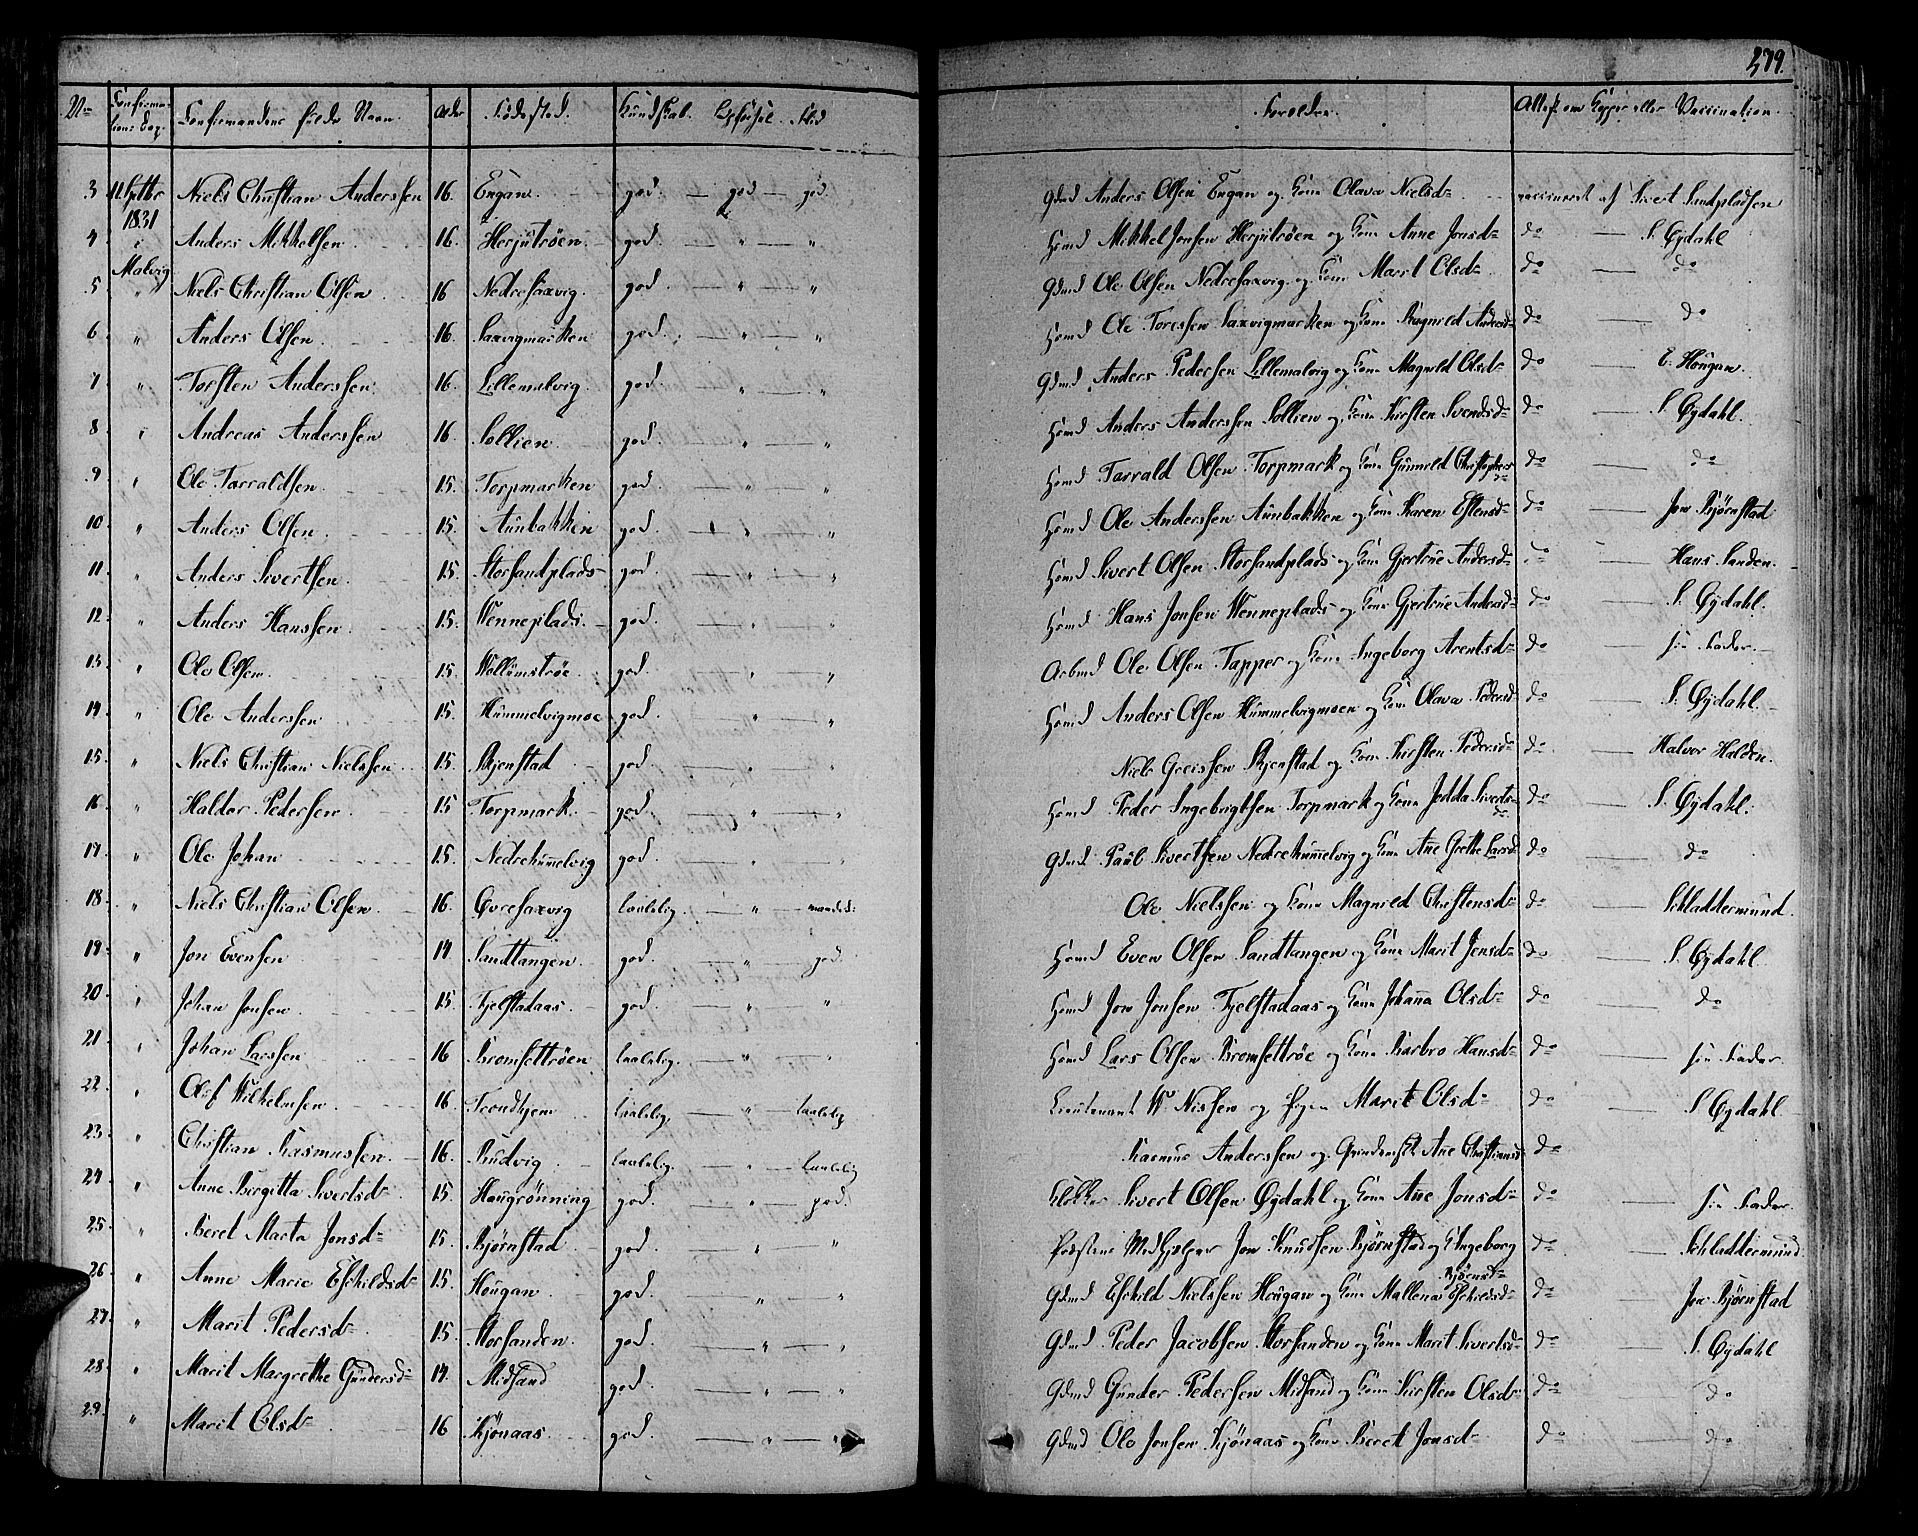 279.
No Confirmations Dag. Confirmandens fulde Navn. Alder Fødested. Kundskab. Opførsel. Flid Forældre. Attest om Kopper eller Vaccination.
3 11 Septbr 1831 i Malvig Niels Christian Anderssen 16. Engan. god. — god — god. Gdmd Anders Olsen Engan og Kone Olava Nielsd vaccineret af Sivert Sandpladsen
4 Anders Mikkelsen 16. Herjutrøen god. — " — " Huusmd Mikkel Jonsen Herjutrøen og Kone Anne Jonsd do — S. Øydahl
5 " Niels Christian Olsen 16 Nedresaxvig. god. — " — " Gdmd Ole Olsen Nedresaxvig og Kone Marit Olsd do — do
6 " Anders Olsen. 16. Saxvigmarken god. — " — " Huusmd Ole Toresen Saxvigmarken og Kone Ragnild Andersd do do
7 " Torsten Anderssen. 16. Lillemalvig. god. — " — " Gdmd Anders Pedersen Lillemalvig og Kone Magnild Olsd do E. Hougan.
8 " Andreas Anderssen 16. Sollien. god. — " — " Huusmd Anders Anderssen Sollien og Kone Kirsten Svendsd do — S. Øydahl.
9 " Ole Tarraldsen. 15. Torpmarken god. — " — " Huusmd Tarrald Olsen Torpmark og Kone Gunnild Christophersd do — do
10. " Anders Olsen. 15. Aunbakken god. — " — " Huusmd Ole Anderssen Aunbakken og Kone Karen Estensd do — Jon Bjørnstad
11. " Anders Sivertsen. 15. Storsandplads god. — " — " Huusmd Sivert Olsen Storsandplads og Kone Gjertrue Andersd do — Hans Sanden.
12. " Anders Hanssen. 15. Wenneplads. god. — " — " Huusmd Hans Jonsen Wenneplads og Kone Gjertrue Andersd do — S. Øydahl.
13. " Ole Olsen. 15. god. — " — " Arbmd Ole Olsen Tapper og Kone Ingeborg Arentsd do — sin Fader.
14. " Ole Anderssen 15. Hummelvigmoe god. — " — " Huusmd Anders Olsen Hummelvigmoen og Kone Olava Pedersd do — S. Øydahl.
15. " Niels Christian Nielssen 15. Bjenstad god — " — " Niels Greissen Bjenstad og Kone Kirsten Pedersd do — Halvor Halden.
16. " Haldor Pedersen 15. Torpmark. god. — " — " Huusmd Peder Ingebrigtsen Torpmark og Kone Jedda Sivertsd do — S. Øydahl.
17. " Ole Johan 15. Nedrehummelvig god. — " — " Gdmd. Paul Sivertsen Nedrehummelvig og Kone Ane Grethe Larsd do — do
18. " Niels Christian Olsen. 16. Øvresaxvig taalelig. — " — maadel: Ole Nielssen og Kone Magnild Christensd do — Schladdermund.
19. " Jon Evensen 14 Sandtangen. god. — " — god. Huusmd Even Olsen Sandtangen og Kone Marit Jensd do — S. Øydahl
20. " Johan Jonsen 15 Fjelstadaas. god. — " — " Huusmd Jon Jonsen Fjelstadaas og Kone Johanna Olsd do — do
21. " Johan Larssen 16 Bromsettrøen taalelig. — " — " Huusmd Lars Olsen Bromsettrøe og Kone Barbro Hansd do — sin Fader.
22. " Oluf Wilhelmsen. 16. Trondhjem taalelig. — " — taalelig Lieutenant W Nissen og Pigen Marit Olsd do — S Øydahl
23. " Christian Rasmussen. 16. Rudvig. taalelig. — " — taalelig Rasmus Anderssen og Ane Christiansd do
24. " Anne Birgitta Sivertsd. 15. Haugrønning god. — " — god. Klokker Sivert Olsen Øydahl og Kone Ane Jonsd do — sin Fader.
25. " Beret Marta Jonsd 15. Bjørnstad. god. — " — " Præstens Medhjelper Jon Knudsen Bjørnstad og K Ingeborg Bjørnsd do — Schladdermund
26. " Anne Marie Eschildsd 15. Hougan. god. — " — " Gdmd Eschild Nielssen Hougan og Kone Mallena Eschildsd do — Jon Bjørnstad
27. " Marit Pedersd 15. Storsanden. god. — " — " Gdmd Peder Jacobsen Storsanden og Kone Marit Sivertsd do — S. Øydahl
28. " Marit Margrethe Gundersd 14. Midsand god. — " — " Gdmd Gunder Pedersen Midsand og Kone Kirsten Olsd do — do
29. " Marit Olsd 16 Kjønaas. god. — " — " Gdmd Ole Jonsen Kjønaas og Kone Beret Jonsd do — do